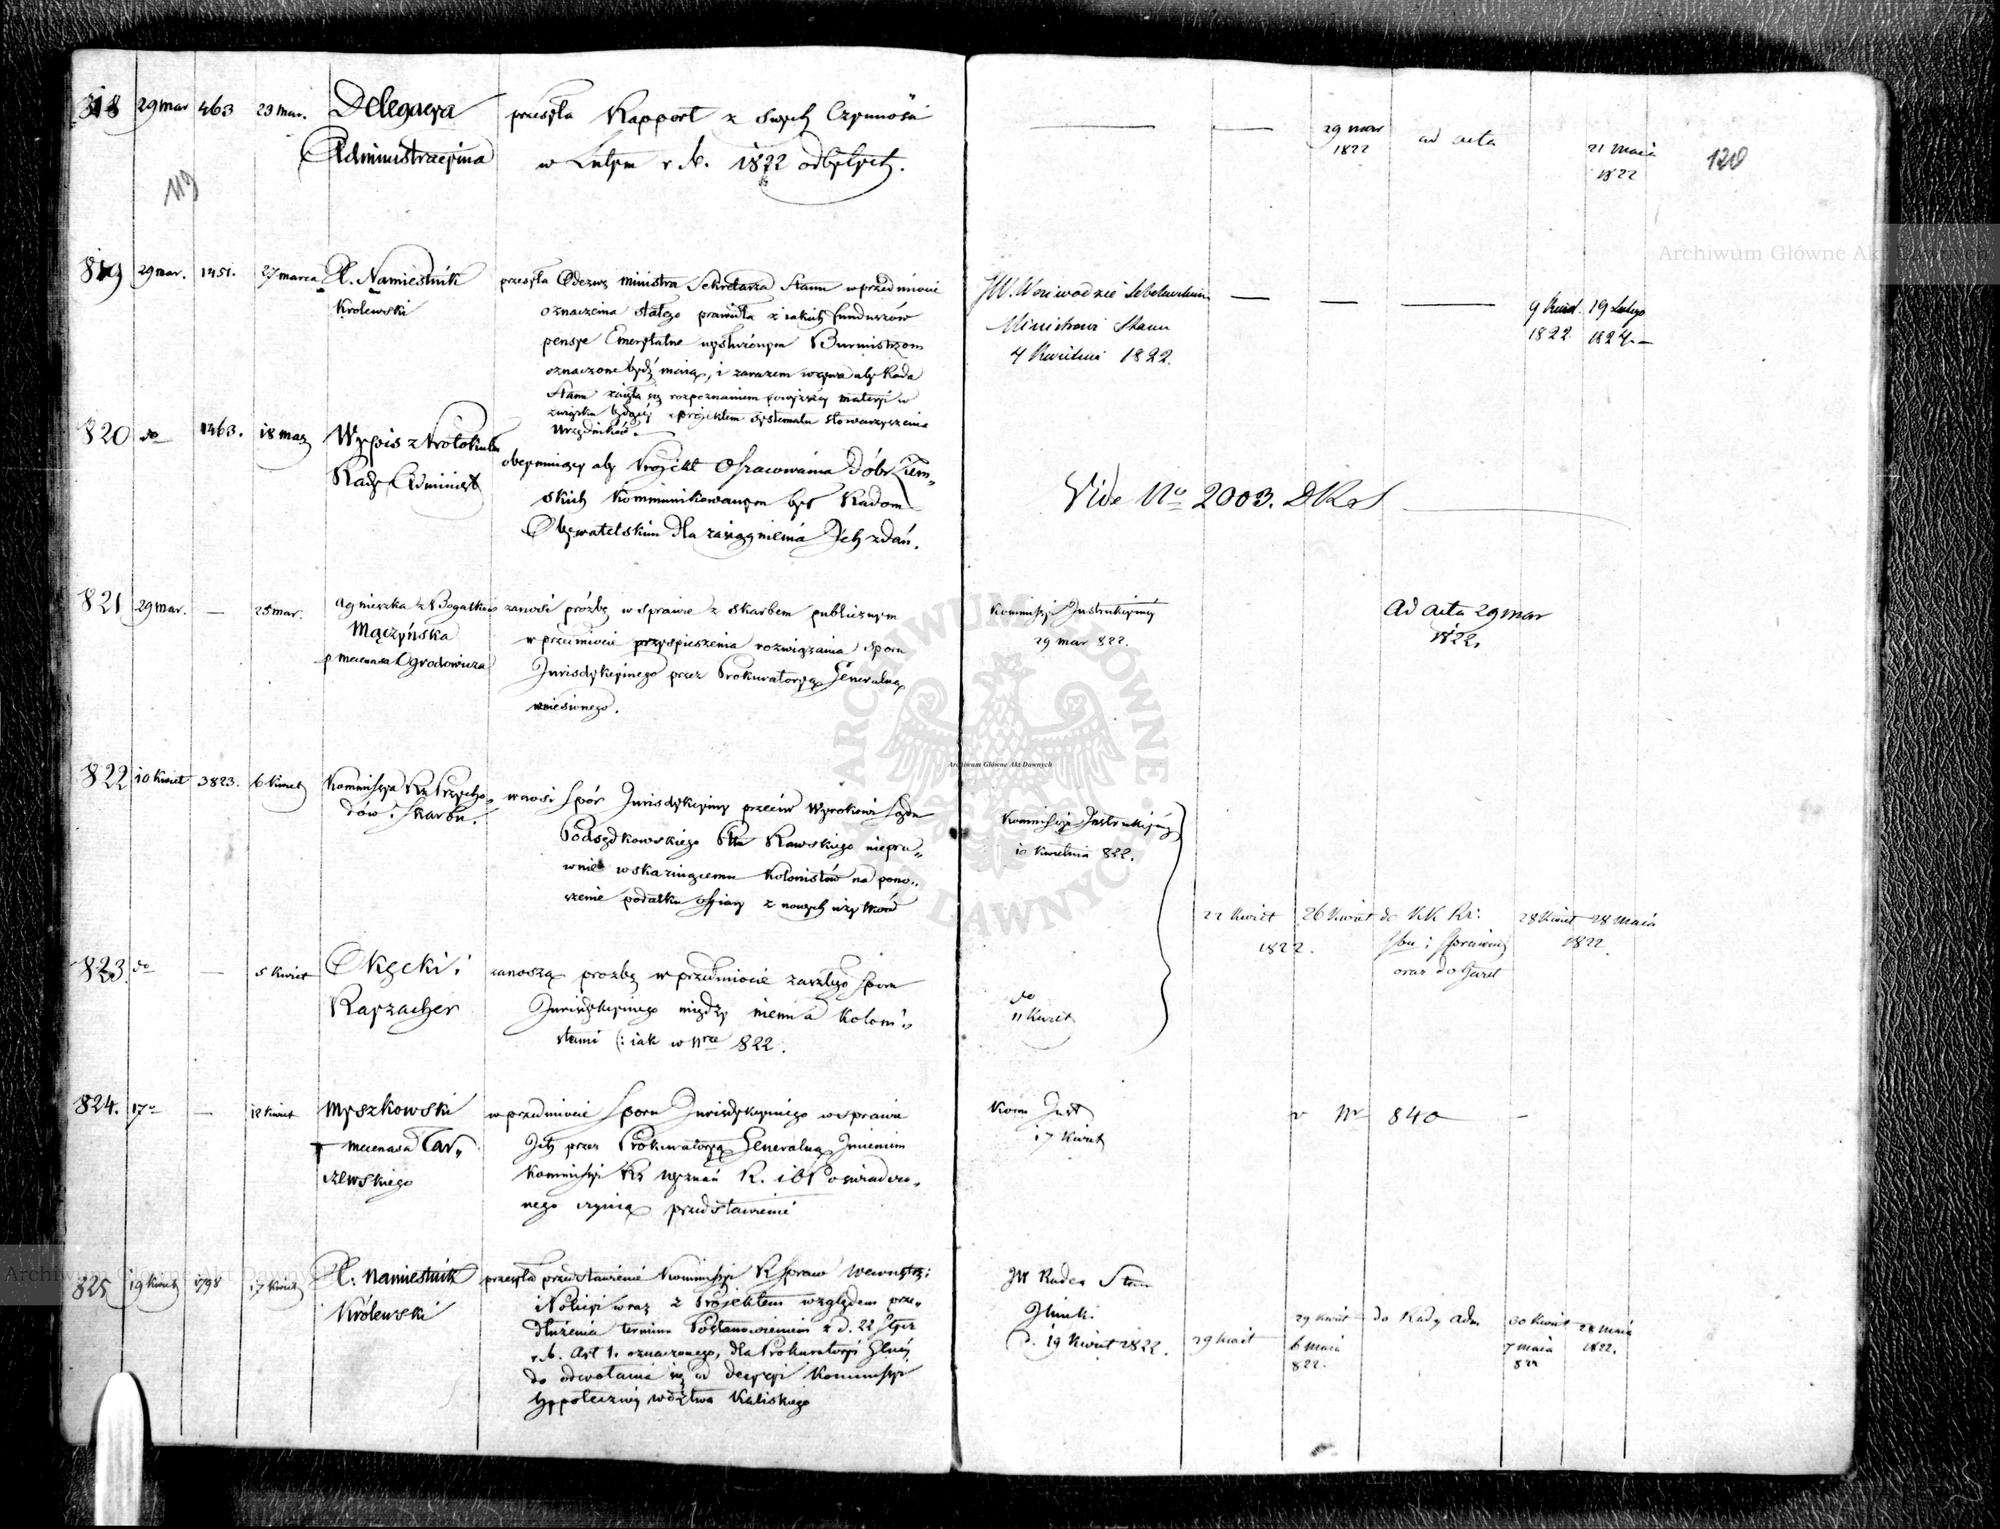 818 29 mar 463 23 mar. Delegacya przesyła Rapport z swych Czynności
Administracyina w Lutym r. b. 1822 odbytych.
29 mar 1822 ad acta 21 Maia 1822
119
120
819 29 mar. 1451. 27 marca X. Namiestnik przesyła Odezwę Ministra Sekretarza Stanu w przedmiocie
Krolewski oznaczenia stałego prawidła z iakich funduszów
pensye Emerytalne wysłużonym Burmistrzom
oznaczone bydź maią, i zarazem wzywa aby Rada
Stanu zaięła się rozpoznaniem powyższey materyi w
związku będącey z projektem systematu stowarzyszenia
Urzędników.
JW. Woiewodzie
Ministrowi Stanu
4 Kwietnia 1822.
9 Kwiet. 1822 19 Lutego 1824.
820 do 1463. 18 mar Wypis z Protokułu
Rady Administ
obeymuiący aby Projekt Oszacowania dóbr Ziem„
skich kommunikowanym był Radom
Obywatelskim dla zasiągnienia Ich zdań.
Vide No 2003. DKS
821 29 mar. — 25 mar. Agnieszka z Bogatków zanosi prózbę w sprawie z skarbem publicznym
Mączyńska w przedmiocie przyspieszenia rozwiązania sporu
p mecenasa Ogrodowicza Jurisdykcyinego przez Prokuratoryą Generalną
wniesionego.
Kommissyi Instrukcyiney
29 mar 822.
Ad acta 29 mar
1822.
822 10 Kwiet 3823. 6 Kwiet Kommissya Rz Przycho„
dów i Skarbu.
wnosi Spór Jurisdykcyiny przeciw Wyrokowi Sądu
Podsędkowskiego Pttu Rawskiego niepra„
wnie wskazuiącemu kolonistów na pono„
szenie podatku ofiary z nowych użytków
Kommissyi Instrukcyiney
10 Kwietnia 822.
22 Kwiet 1822. 26 Kwiet do KK Rz:
Sbu i Sprawied
oraz do Gazet
28 Kwiet 28 Maia
1822.
823. do — 5 Kwiet Okęcki i
Kayzacher
zanoszą prozbę w przedmiocie zaszłego Sporu
Jurisdykcyinego między niemi a koloni„
stami (: iak w Nrze 822.
do
11 Kwiet
824. 17o — 12 Kwiet Myszkowski
mecenasa Tar„
czewskiego
w przedmiocie Sporu Jurisdykcyinego w sprawie
Ich przez Prokuratoryą Generalną Jmieniem
Kommissyi Rz Wyznań R. i O P oświadczo„
nego czynią przedstawienie
Kom Inst
17 Kwiet
v Nr 840
825 19 Kwiet 1798 17 Kwiet X. Namiestnik
Królewski
przesyła przedstawienie Kommissyi R Spraw Wewnętrz:
i Policyi wraz z Projektem względem prze„
dłużenia terminu Postanowieniem z d. 22 Stycz
r. b. Art 1. oznaczonego, dla Prokuratoryi Glney
do odwołania się od decyzyi Kommissyi
hypoteczney wdztwa Kaliskiego
JW Radca Stanu
d. 19 Kwiet 1822.
29 Kwiet
29 Kwiet
6 maia
822.
do Rady Adm
30 Kwiet
7 maia
822
28 Maia
1822.
Archiwum Główne Akt Dawnych
Archiwum Główne Akt Dawnych
Archiwum Główne Akt Dawnych
ARCHIWUM GŁÓWNE AKT DAWNYCH